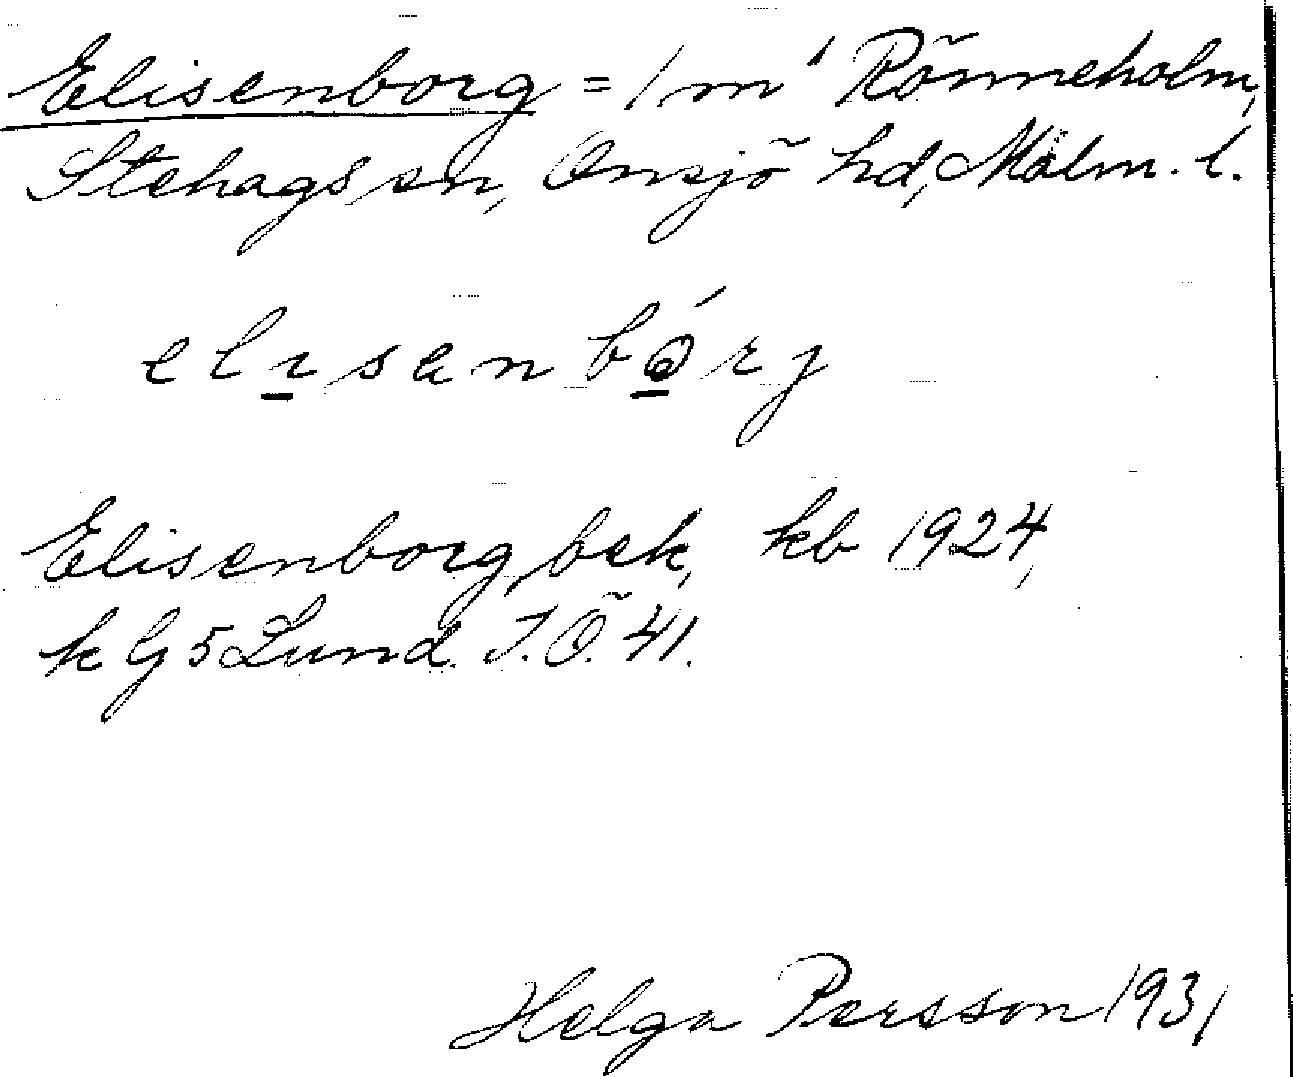 Elisenborg = 1 m¹ Rönneholm,
Stehags sn, Onsjö hd, Malm. l.
elısenbǫ́rj
Elisenborg, bek, kb 1924,
k G 5 Lund. J.Ö. 41.
Helga Persson 1931